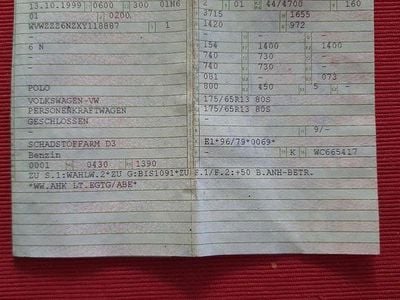 13.10.1999 0600 300 01H6
01 0200
WVWZZZ6NZKY118887 1
6 N -
-
-
POLO
VOLKSWAGEN-VW
PERSONENKRAFTWAGEN
GESCHLOSSEN
SCHADSTOFFARM D3
Benzin
0001 0430 1390
2 01 44/4700 160
3715 1655
1420 972
- - -
154 1400 1400
740 730 -
740 730 -
081 - 073
800 450 5 -
175/65R13 80S
175/65R13 80S
-
-
- 9/-
E1*96/79*0069*
- K WC665417
ZU S.1:WAHLW.2*ZU G:BIS1091*ZU F.1/F.2:+50 B.ANH-BETR.
*WW.AHK LT.EGTG/ABE*